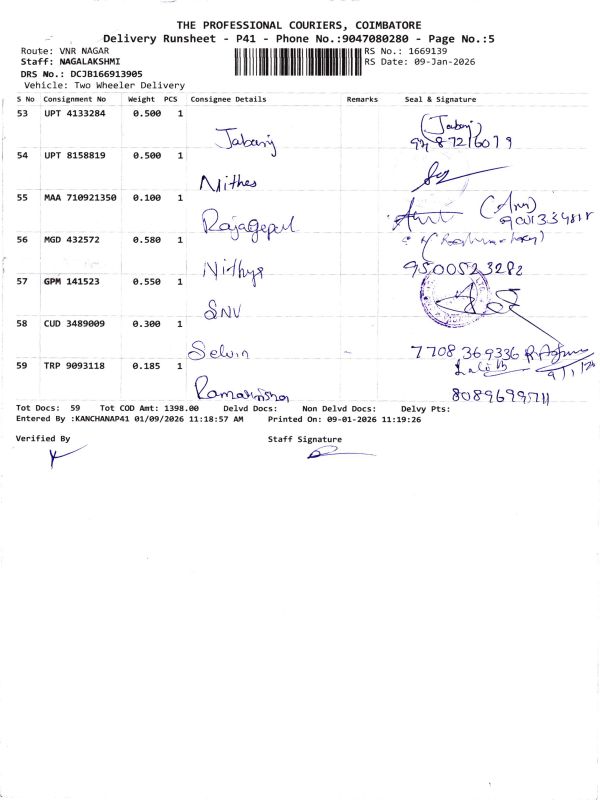 THE PROFESSIONAL COURIERS, COIMBATORE
Delivery Runsheet - P41 - Phone No.:9047080280 - Page No.:5
Route: VNR NAGAR
RS No.: 1669139
Staff: NAGALAKSHMI
RS Date: 09-Jan-2026
DRS No.: DCJB166913905
Vehicle: Two Wheeler Delivery
S No Consignment No Weight PCS Consignee Details Remarks Seal & Signature
53 UPT 4133284 0.500 1
54 UPT 8158819 0.500 1
Nithes
55 MAA 710921350 0.100 1
56 MGD 432572 0.580 1
Nithya 9500523282
57 GPM 141523 0.550 1
SNV
58 CUD 3489009 0.300 1
Selvin - 7708 369336
59 TRP 9093118 0.185 1
Tot Docs: 59 Tot COD Amt: 1398.00 Delvd Docs: Non Delvd Docs: Delvy Pts:
Entered By :KANCHANAP41 01/09/2026 11:18:57 AM Printed On: 09-01-2026 11:19:26
Verified By Staff Signature